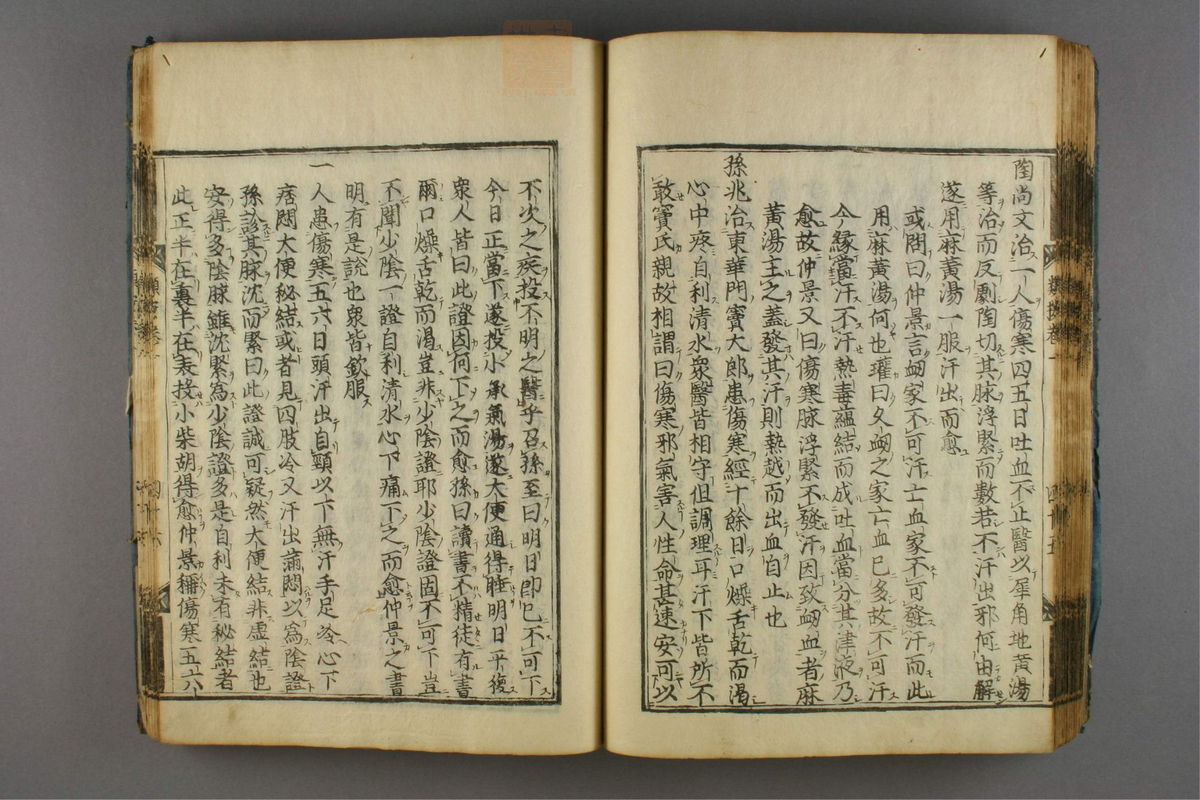 陶尚文治一人傷寒四五日吐血不止醫以犀角地黄湯
等治而反劇陶切其脉浮緊而數若不汗出邪何由解
遂用麻黄湯一服汗出而愈
或問曰仲景言衂家不可汗亡血家不可發汗而此
用麻黄湯何也瓘曰久衂之家亡血已多故不可汗
今縁當汗不汗熱毒蘊結而成吐血當分其津液乃
愈故仲景又曰傷寒脉浮緊不發汗因致衂血者麻
黄湯主之蓋發其汗則熱越而出血自止也
孫兆治東華門竇太郎患傷寒經十餘日口燥舌乾而渇
心中疼自利清水衆醫皆相守但調理耳汗下皆所不
敢竇氏親故相謂曰傷寒邪氣害人性命甚速安可以
不次之疾投不明之醫乎召孫至曰明日即已不可下
今日正當下遂投小承氣湯遂大便通得睡明日平復
衆人皆曰此證因何下之而愈孫曰讀書不精徒有書
爾口燥舌乾而渇豈非少陰證耶少陰證固不可下豈
不聞少陰一證自利清水心下痛下之而愈仲景之書
明有是説也衆皆欽服
一人患傷寒五六日頭汗出自頸以下無汗手足冷心下
痞悶大便秘結或者見四肢冷又汗出滿悶以為陰證
孫診其脉沈而緊曰此證誠可疑然大便結非虚結也
安得多陰脉雖沈緊為少陰證多是自利未有秘結者
此正半在裏半在表投小柴胡得愈仲景稱傷寒五六